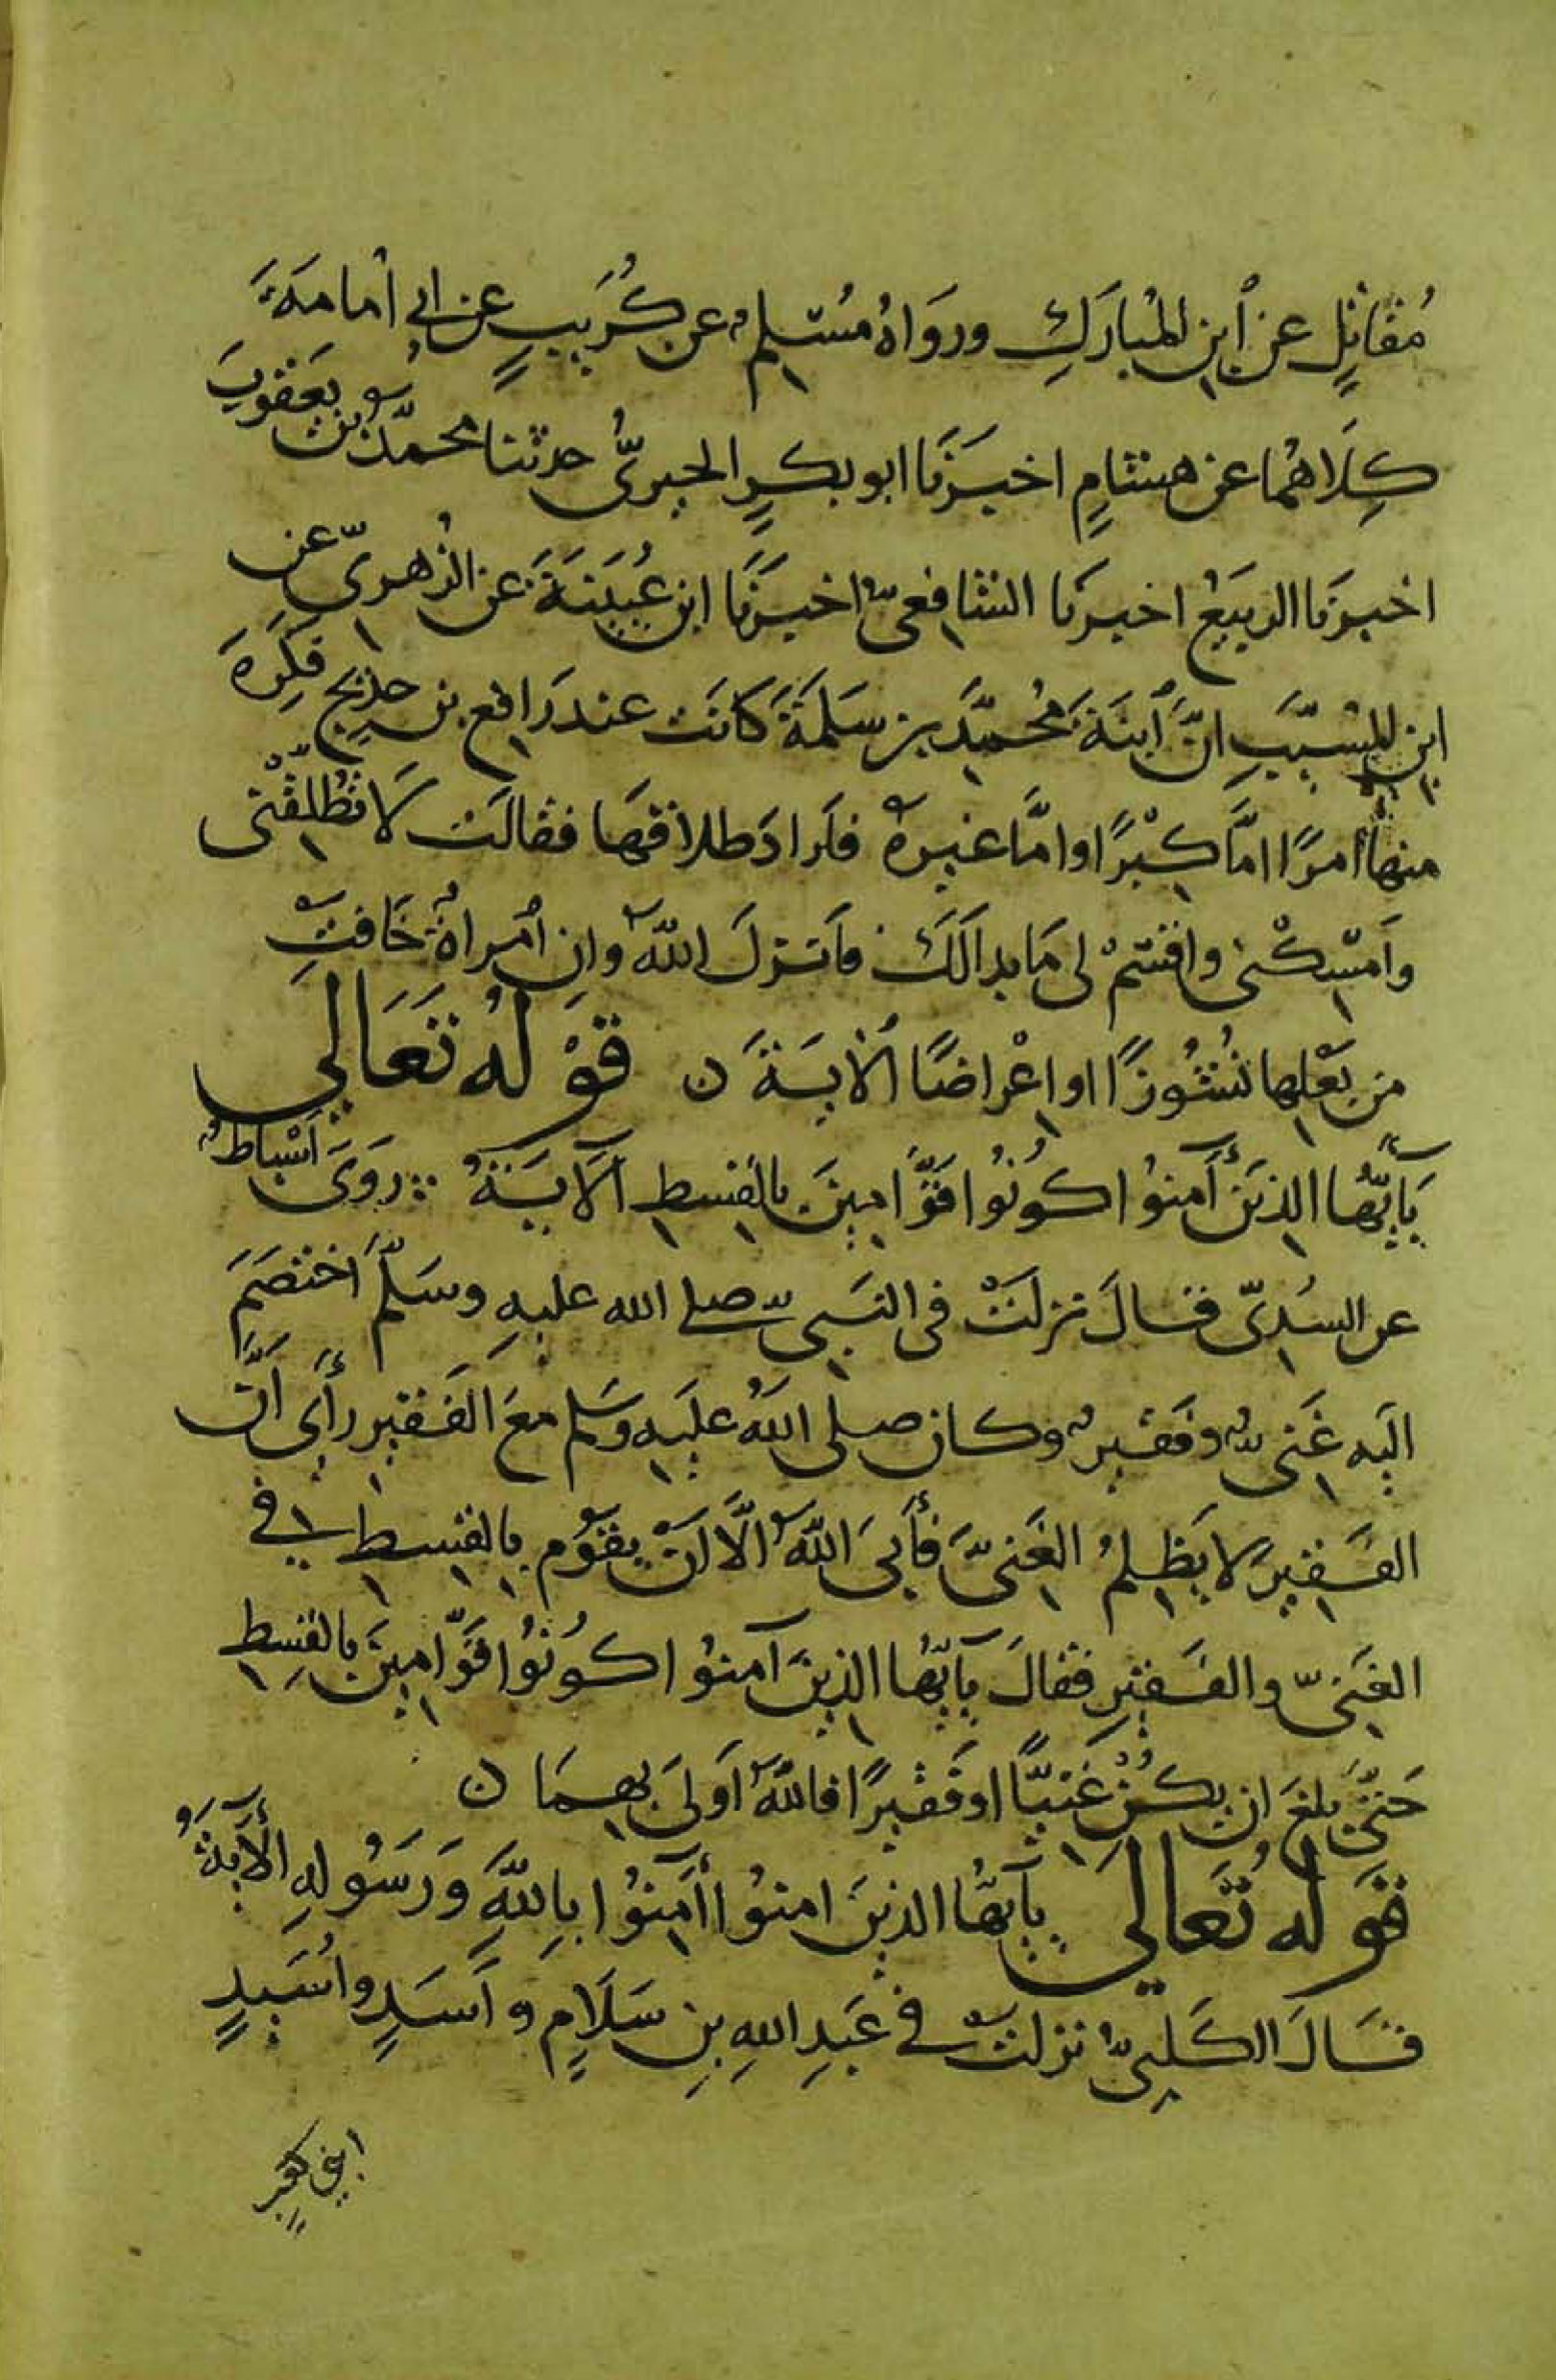 مُقَاتِلٍ عن ٱبنِ المُبَارَكِ ورَوَاهُ مُسْلِمٌ عن كُرَيبٍ عن ابي أُمامَةَ
كِلَاهُما عن هشامٍ اخبَرَنَا ابو بكرٍ الحيرىُّ حدثنا محمّدُ بنُ يَعقوبَ
اخبرَنا الربيعُ اخبرنا الشافِعىُّ اخبَرَنَا ابن عُيَيْنَةَ عن الزُهرىِّ عن
ابن المُسَيَّبِ انَّ ٱبنَةَ مُحمَّدِ بن سَلَمَةَ كانَت عندَ رَافعِ بنِ خديجٍ فكَرِهَ
منها أمرًا امَّا كِبْرًا وامَّا غيرهُ فأرادَ طلاقَهَا فقالَت لَا تُطَلِّقْنى
وأَمسِكْنى واقسِمْ لى مَا بدا لَكَ فأنزلَ اللهُ وإن ٱمْرأةٌ خَافتْ
من بَعْلِها نُشُوزًا او إعْراضًا الآيةَ ن قَوْلُهُ تَعَالي
يَآيُّها الذينَ آمنُوا كُونُوا قَوَّامِينَ بالقِسطِ الآيَةُ رَوَى أَسْباطُ
عن السُدىّ قالَ نزلَتْ فى النبىّ صلى الله عليهِ وسَلَّم اختصَمَ
اليَه غَنىٌّ وفَقيرٌ وكان صلى اللهُ عليَهِ وسَلم معَ الفَقيرِ رأَى أنَّ
الفَقيرَ لا يَظلِمُ الغَنىَّ فأَبىَ اللهُ الَّا أن يقوُم بالقِسطِ في
الغَنىّ والفَقيرِ فقالَ يآيُّها الذينَ آمنُوا كُونُوا قَوَّامِينَ بالقِسطِ
حَتىَّ بلغَ ان يكُنْ غَنيًّا او فَقيرًا فاللهُ أَولىَ بهِمَا ن
قَولُهُ تَعَالي يآيُّها الذينَ امنوُا أآمنُوا باِللهِ وَرَسُولهِ الأَيَةُ
قَالَ الكَلبىُّ نزلَتْ في عَبدِ اللهِ بنِ سَلَامٍ وأَسَدٍ وأُسَيدٍ
ابنى كعبٍ